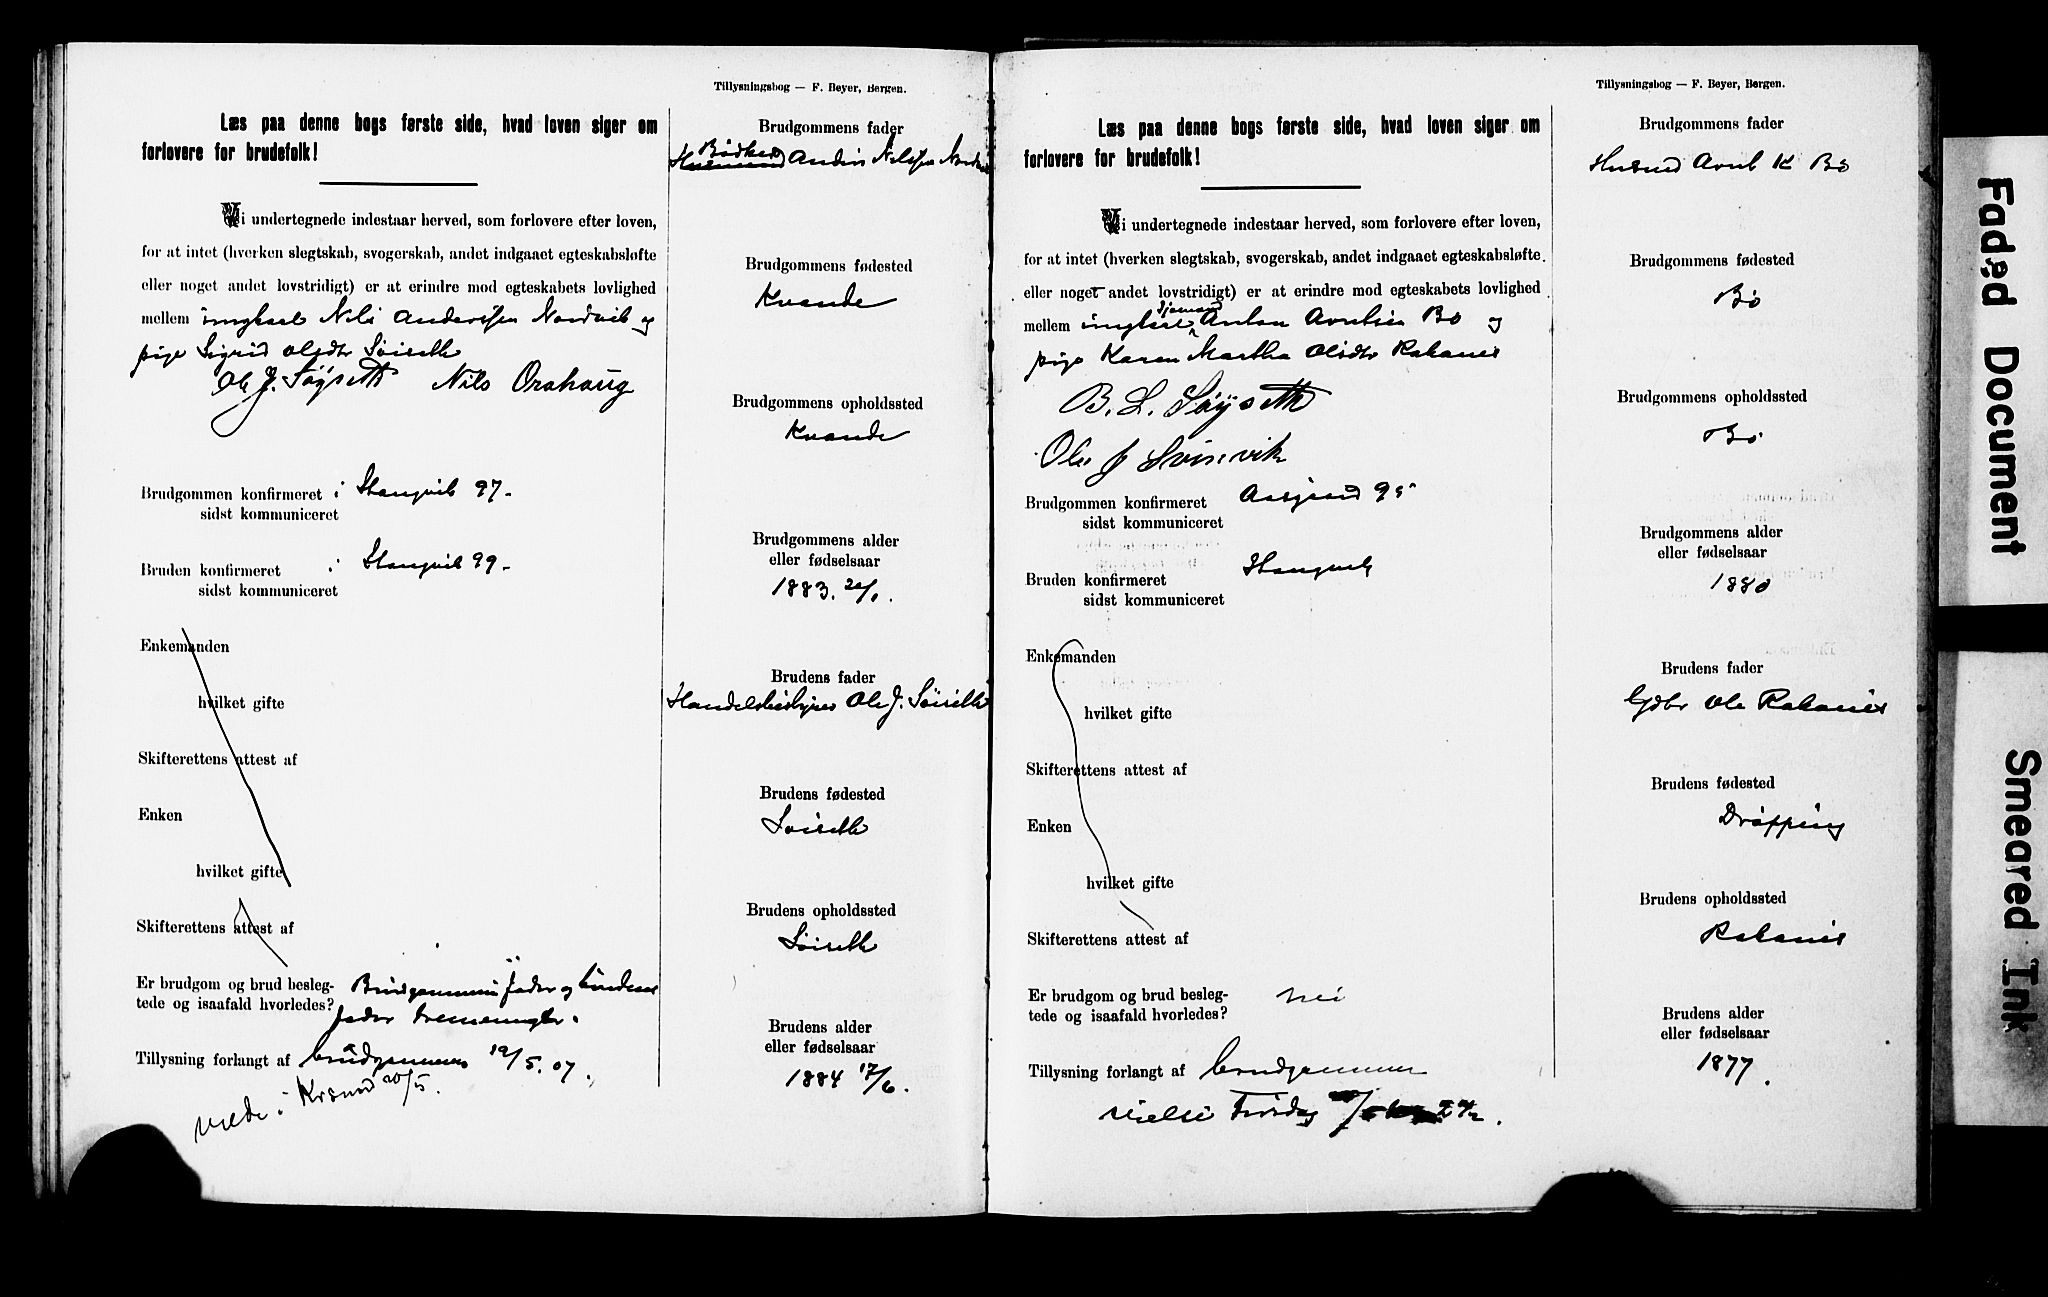 Tillysningsbog — F. Beyer, Bergen.
Læs paa denne bogs første side, hvad loven siger om
forlovere for brudefolk!
Vi undertegnede indestaar herved, som forlovere efter loven,
for at intet (hverken slegtskab, svogerskab, andet indgaaet egteskabsløfte
eller noget andet lovstridigt) er at erindre mod egteskabets lovlighed
mellem ungkarl Nils Anderssen Nordvik og
pige Sigrid Olsdtr Søiseth
Ole J. Søyseth Nils Orahaug
Brudgommen konfirmeret i Stangvik 97-
sidst kommuniceret
Bruden konfirmeret i Stangvik 99-
sidst kommuniceret
Enkemanden
hvilket gifte
Skifterettens attest af
Enken
hvilket gifte
Skifterettens attest af
Er brudgom og brud besleg- Brudgommens fader og brudens
tede og isaafald hvorledes? fader tremenninger.
Tillysning forlangt af brudgommen 19/5.07.
viede i Krsund 20/5.
Brudgommens fader
Bødker
Husmand Anders Nilssen
Brudgommens fødested
Kvande
Brudgommens opholdssted
Kvande
Brudgommens alder
eller fødselsaar
1883.
Brudens fader
Ole J. Søiseth
Brudens fødested
Søiseth
Brudens opholdssted
Søiseth
Brudens alder
eller fødselsaar
1884 17/6.
Tillysningsbog — F. Beyer, Bergen.
Læs paa denne bogs første side, hvad loven siger om
forlovere for brudefolk!
Vi undertegnede indestaar herved, som forlovere efter loven,
for at intet (hverken slegtskab, svogerskab, andet indgaaet egteskabsløfte
eller noget andet lovstridigt) er at erindre mod egteskabets lovlighed
Sjømand
mellem ungkarl Anton Arntsen Bø og
pige Karen Martha Olsdtr Rakanes
B. L. Søyseth
Ole J Svinvik
Brudgommen konfirmeret Aasgaard 95
sidst kommuniceret
Bruden konfirmeret Stangvik
sidst kommuniceret
Enkemanden
hvilket gifte
Skifterettens attest af
Enken
hvilket gifte
Skifterettens attest af
Er brudgom og brud besleg- nei
tede og isaafald hvorledes?
Tillysning forlangt af brudgommen
vielse
Brudgommens fader
Husmd Arnt K Bø
Brudgommens fødested
Bø
Brudgommens opholdssted
Bø
Brudgommens alder
eller fødselsaar
1880
Brudens fader
Gdbr Ole Rakanes
Brudens fødested
Drøpping
Brudens opholdssted
Rakanes
Brudens alder
eller fødselsaar
1877.
Faded Document
Smeared Ink